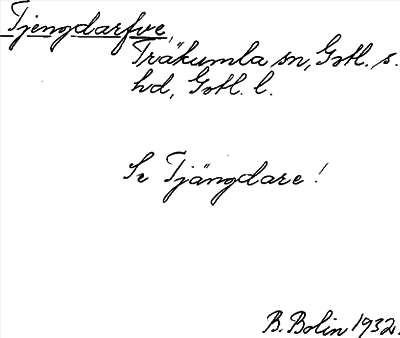 Tjengdarfve,
Träkumla sn, Gotl. s.
hd, Gotl. l.
Se Tjängdare!
B. Bolin 1932.